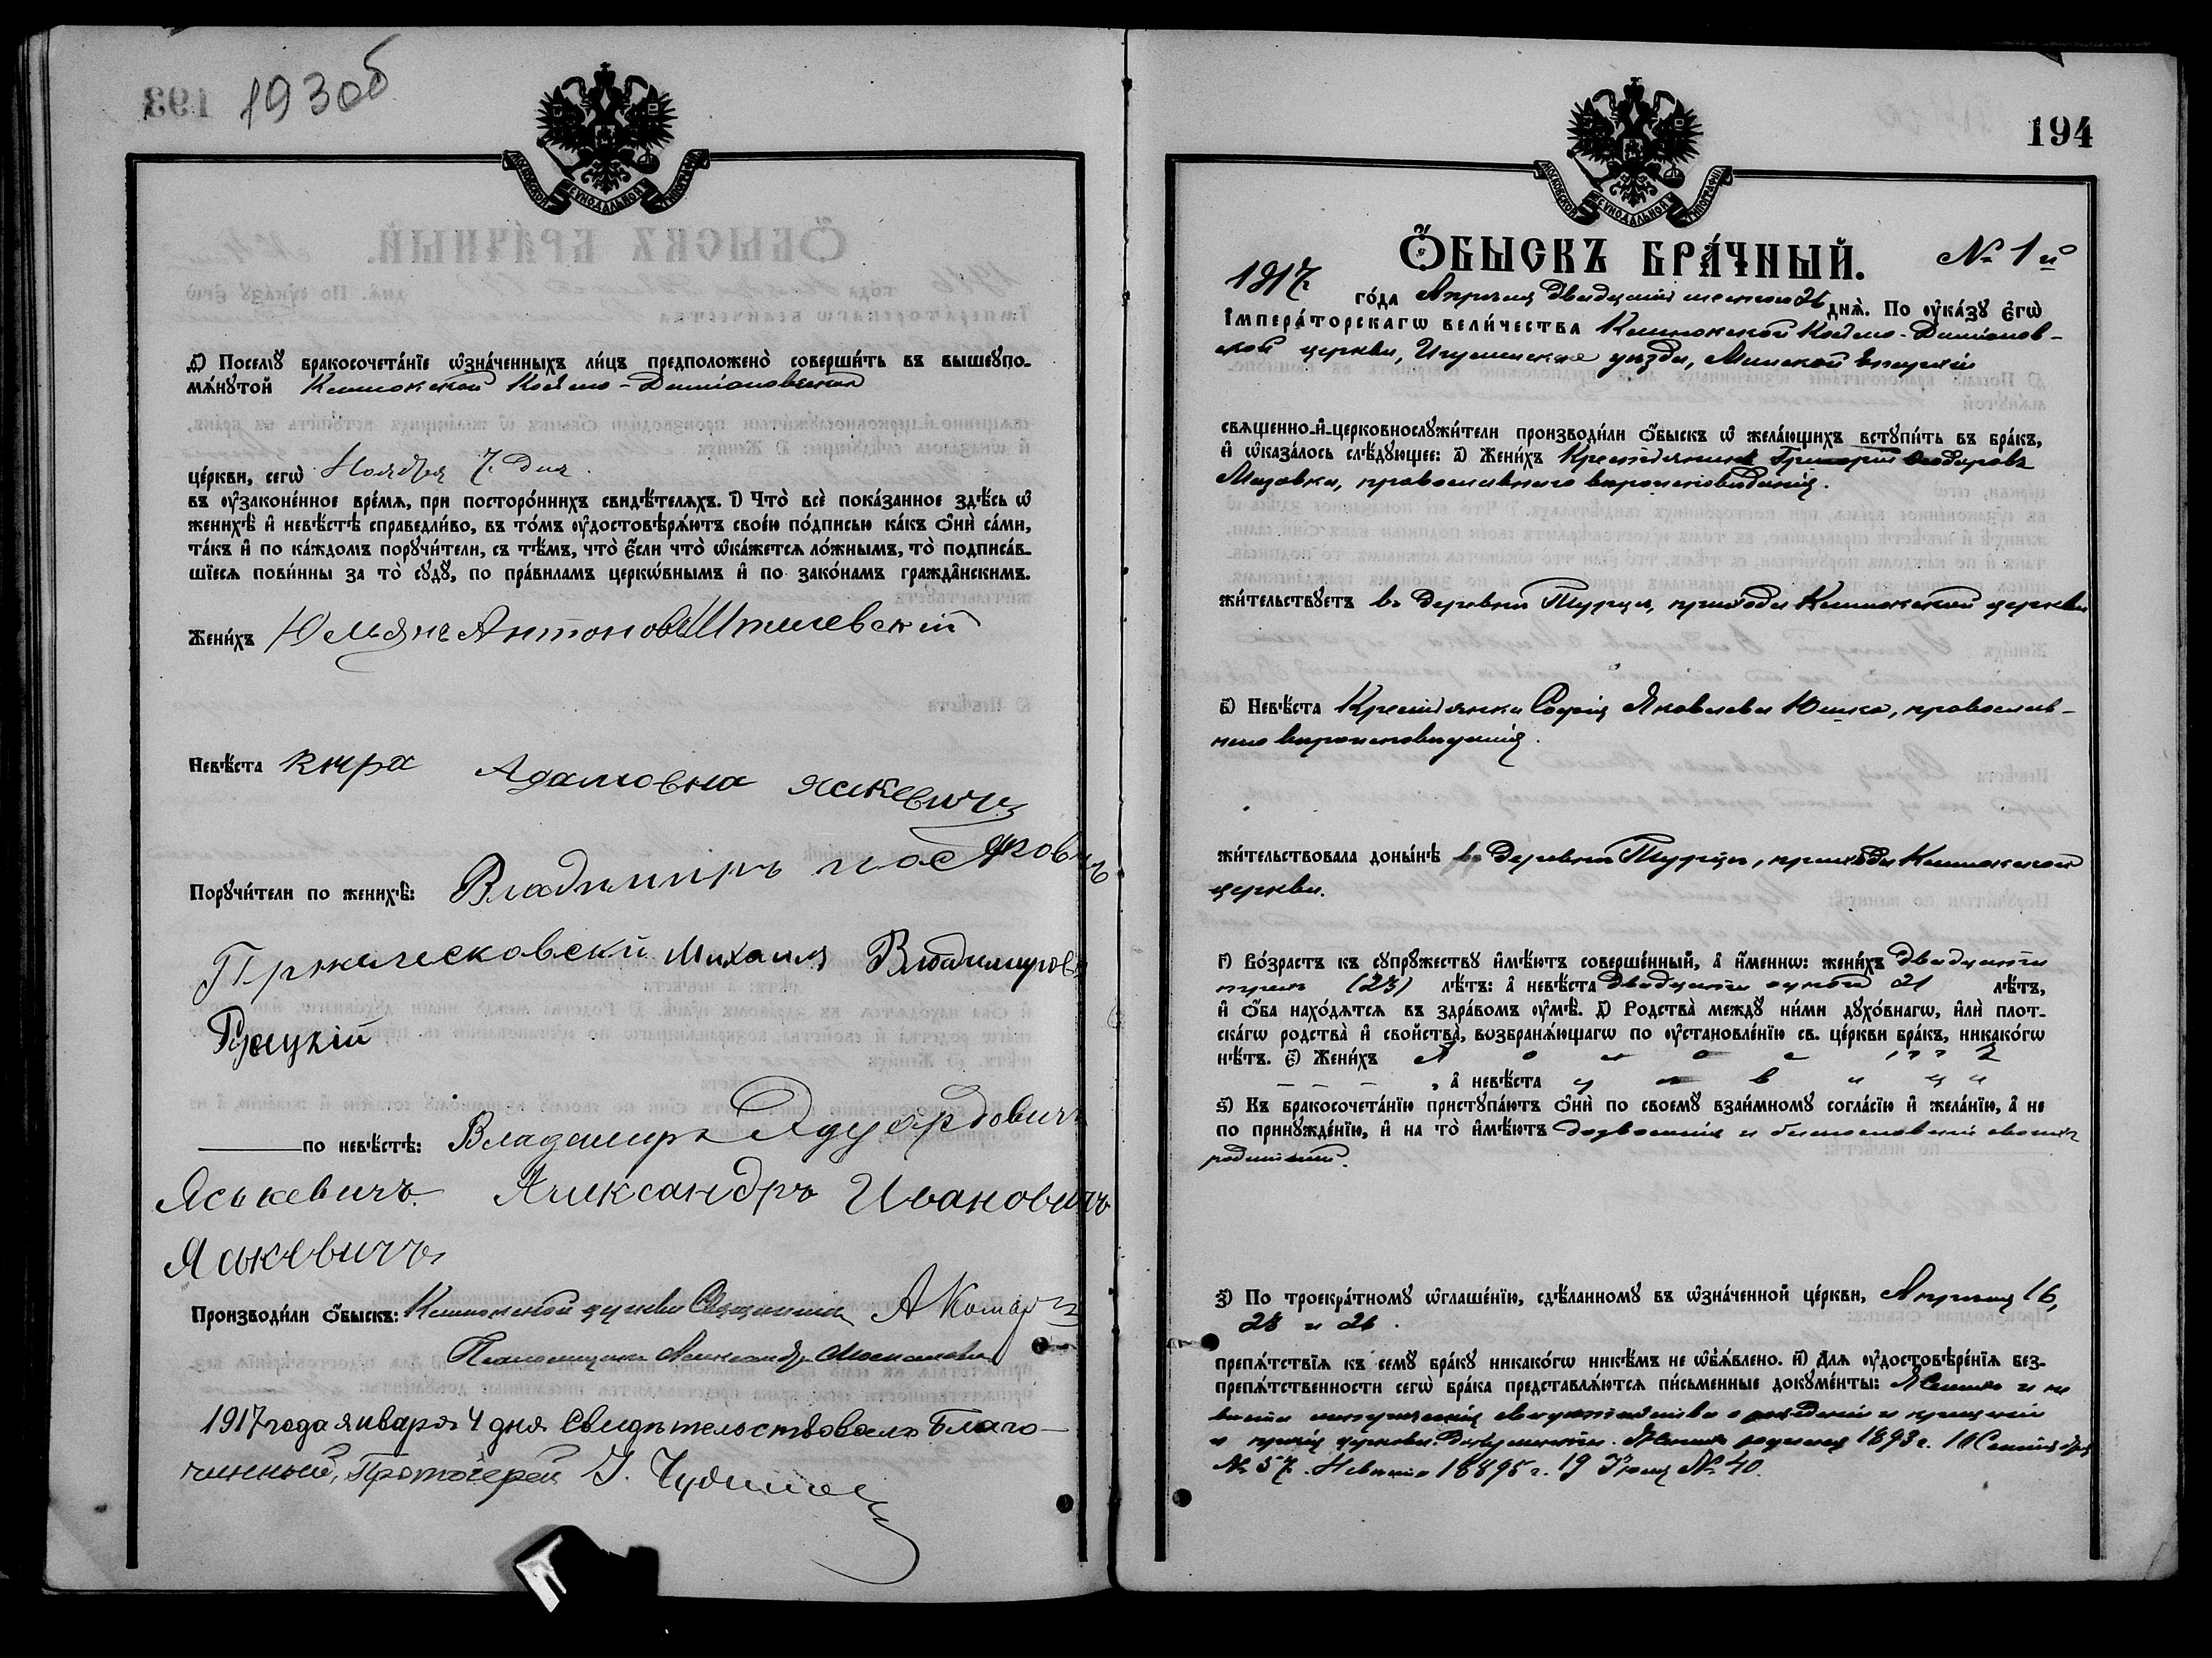 193об
МОСКОВСКОЙ СѴНОДАЛЬНОЙ ТИПОГРАФІИ
Д҃) Посемꙋ бракосочета́нїе ѡ҆зна́ченныхъ ли́цъ предположено̀ соверши́ть въ вышеꙋпо-
мѧ́нꙋтой Космо-Даміановской
це́ркви, сегѡ̀ Ноября 7 дня.
въ ᲂу҆зако́ненное вре́мѧ, при посторо́ннихъ свидѣ́телѧхъ. І҃) Что̀ всѐ пока́занное здѣ́сь ѡ҆
женихѣ̀ и҆ невѣ́стѣ справедли́во, въ то́мъ ᲂу҆достовѣрѧ́ютъ свое́ю по́дписью ка́къ ѻ҆нѝ са́ми,
та́къ и҆ по ка́ждомъ порꙋчи́тели, съ тѣ́мъ, что̀ є҆́сли что̀ ѡ҆ка́жетсѧ ло́жнымъ, то̀ подписа́в-
шїесѧ пови́нны за то̀ сꙋдꙋ̀, по пра́виламъ церкѡ́внымъ и҆ по зако́намъ гражда̂нскимъ.
Жени́хъ Юльянъ Антоновъ
Невѣ́ста Кира Адамовна Яскевичъ
Порꙋчи́тели по женихѣ̀: Владимиръ
Михаилъ Владимировъ
Рудцкій
по невѣ́стѣ: Владимиръ Эдуардовичъ
Яськевичъ Александръ Ивановичъ
Яськевичъ
Производи́ли ѻ҆́быскъ: церкви Священникъ А Комаръ
Псаломщикъ Александръ
1917 года января 4 дня Свидѣтельствовалъ Благо-
чинный, Протоіерей
194
МОСКОВСКОЙ СѴНОДАЛЬНОЙ ТИПОГРАФІИ
Ѻ҆́БЫСКЪ БРА́ЧНЫЙ. № 1й
1917 го́да Апрѣля двадцать шестого 26 днѧ̀. По ᲂу҆ка́зꙋ є҆гѡ̀
І҆мпера́торскагѡ вели́чества Космо-Даміанов-
ской церкви, Игуменскаго уѣзда, Минской Епархіи
свѧще́нно-и҆-церковнослꙋжи́тели производи́ли ѻ҆́быскъ ѡ҆ жела́ющихъ встꙋпи́ть въ бра́къ,
и҆ ѡ҆каза́лось слѣ́дꙋющее: а҃) Жени́хъ Крестьянинъ Григорій Ѳеодоровъ
Мазовка, православнаго вѣроисповѣданія.
жи́тельствꙋетъ въ деревнѣ Турецъ, прихода церкви
в҃) Невѣ́ста Крестьянка Софія Яковлева Юшко, православ-
наго вѣроисповѣданія.
жи́тельствовала доны́нѣ въ деревнѣ Турецъ, прихода
церкви.
г҃) Во́зрастъ къ сꙋпрꙋжествꙋ и҆мѣ́ютъ соверше́нный, а҆ и҆́меннѡ: жени́хъ двадцати
трехъ (23) лѣ́тъ: а҆ невѣ́ста двадцати одной 21 лѣ́тъ,
и҆ ѻ҆́ба нахо́дѧтсѧ въ здра́вомъ ᲂу҆мѣ̀. Д҃) Родства̀ междꙋ ни́ми дꙋхо́внагѡ, и҆лѝ плот-
ска́гѡ родства̀ и҆ сво́йства̀, возбранѧ́ющагѡ по ᲂу҆становле́нїю св. це́ркви бра́къ, никако́гѡ
нѣ́тъ. є҃) Жени́хъ х о л о с т ъ
, а҆ невѣ́ста
ѕ҃) Къ бракосочета́нїю пристꙋпа́ютъ ѻ҆нѝ по своемꙋ̀ взаи́мномꙋ согла́сїю и҆ жела́нїю, а҆ не
по принꙋжде́нїю, и҆ на то̀ и҆мѣ́ютъ дозволеніе и благословеніе своихъ
родителей.
з҃) По троекра́тномꙋ ѡ҆глаше́нїю, сдѣ́ланномꙋ въ ѡ҆зна́ченной це́ркви, Апрѣля 16,
23 и 26.
препѧ́тствїѧ къ семꙋ̀ бра́кꙋ никако́гѡ никѣ́мъ не ѡ҆б̾ѧ́влено. и҃) Длѧ ᲂу҆достовѣре́нїѧ без-
препѧ́тственности сегѡ̀ бра́ка представлѧ́ютсѧ пи́сьменные докꙋме́нты: Жениха и не
вѣсты метрическія свидѣтельства о рожденіи и крещеніи
и церковн. документы. Женихъ родился 1893 г. Сентября
№ 57. Невѣста 1895 г. 19 Іюля № 40.